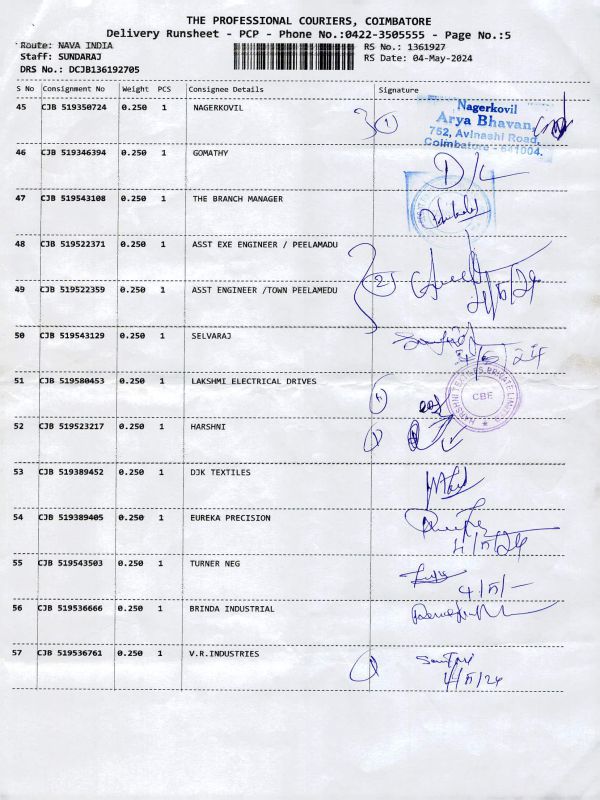 THE PROFESSIONAL COURIERS, COIMBATORE
Delivery Runsheet - PCP - Phone No.:0422-3505555 - Page No.:5
Route: NAVA INDIA
RS No.: 1361927
Staff: SUNDARAJ
RS Date: 04-May-2024
DRS No.: DCJB136192705
S No Consignment No Weight PCS Consignee Details Signature
45 CJB 519350724 0.250 1 NAGERKOVIL
Nagerkovil
Arya Bhavan,
752, Avinashi Road,
Coimbatore - 641004.
46 CJB 519346394 0.250 1 GOMATHY D/L
47 CJB 519543108 0.250 1 THE BRANCH MANAGER
48 CJB 519522371 0.250 1 ASST EXE ENGINEER / PEELAMADU
49 CJB 519522359 0.250 1 ASST ENGINEER /TOWN PEELAMEDU
50 CJB 519543129 0.250 1 SELVARAJ
51 CJB 519580453 0.250 1 LAKSHMI ELECTRICAL DRIVES
HARSHNI TEXTILES PRIVATE LIMITED
CBE
52 CJB 519523217 0.250 1 HARSHNI
53 CJB 519389452 0.250 1 DJK TEXTILES
54 CJB 519389405 0.250 1 EUREKA PRECISION
55 CJB 519543503 0.250 1 TURNER NEG
56 CJB 519536666 0.250 1 BRINDA INDUSTRIAL
57 CJB 519536761 0.250 1 V.R.INDUSTRIES